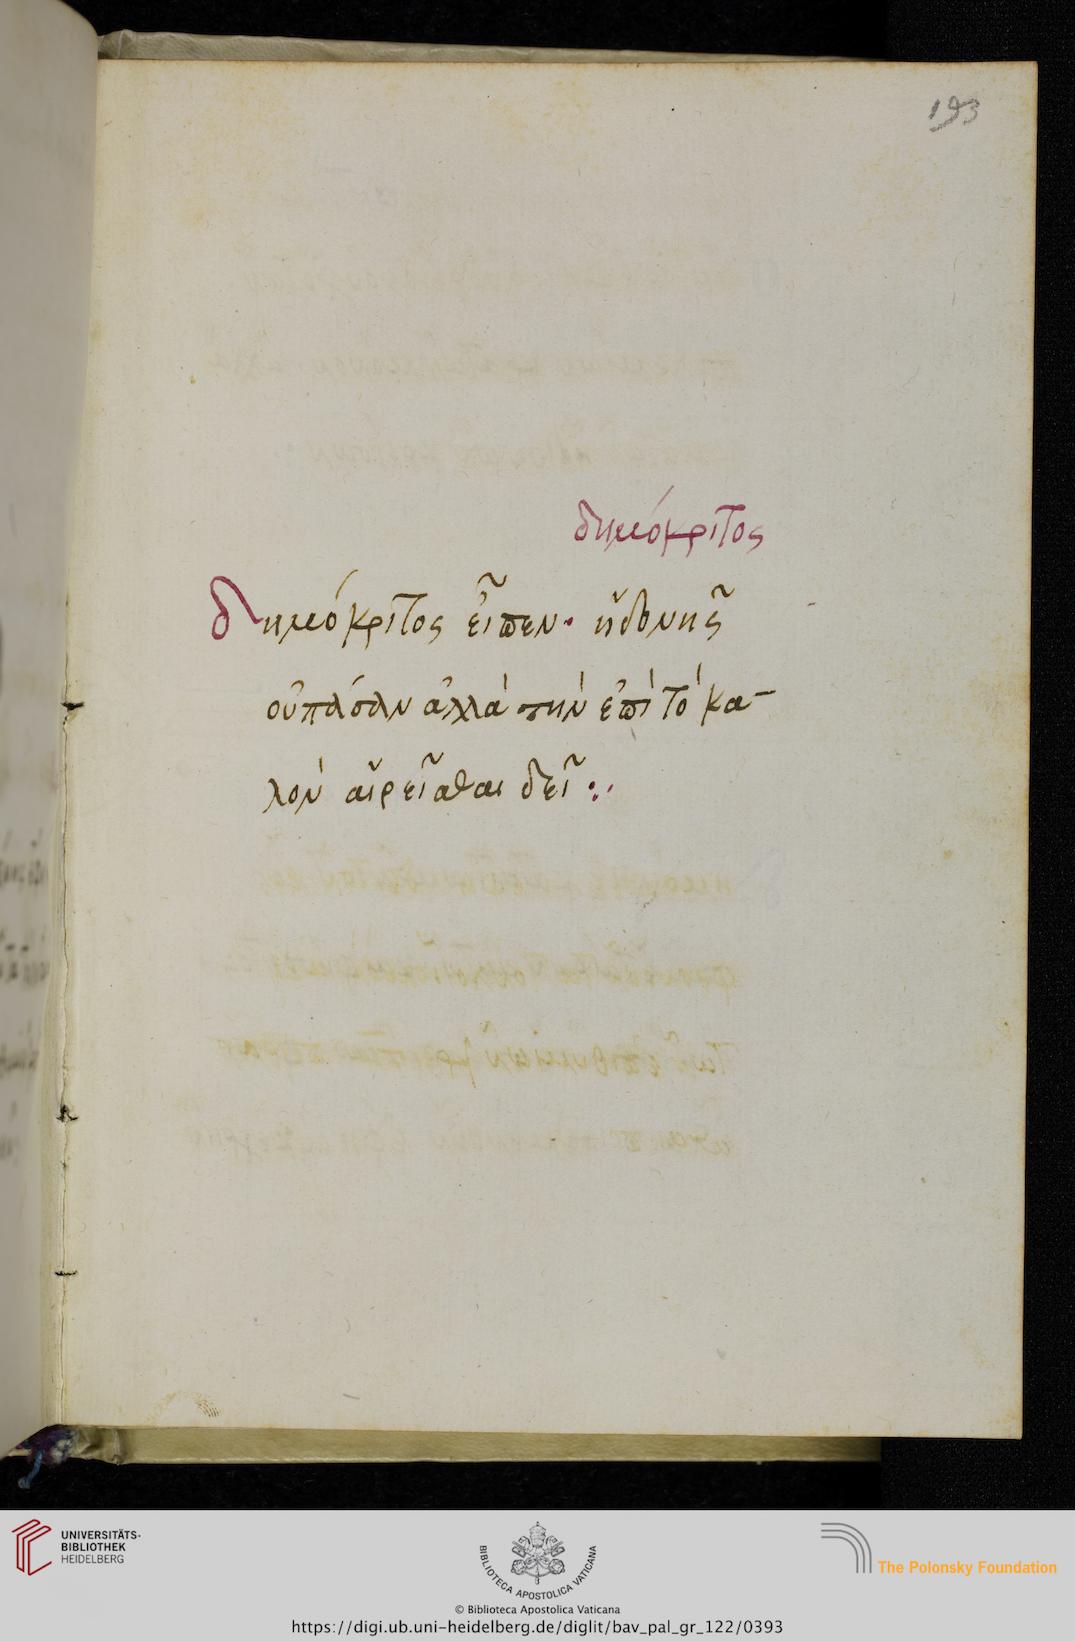 193
δημόκριτος
δημόκριτος εἶπεν· ἡδονῆς
οὐ πᾶσαν ἀλλὰ τὴν ἐπὶ τὸ κα-
λὸν αἱρεῖσθαι δεῖ:·
UNIVERSITÄTS-
BIBLIOTHEK
HEIDELBERG
BIBLIOTECA APOSTOLICA VATICANA
The Polonsky Foundation
© Biblioteca Apostolica Vaticana
https://digi.ub.uni-heidelberg.de/diglit/bav_pal_gr_122/0393